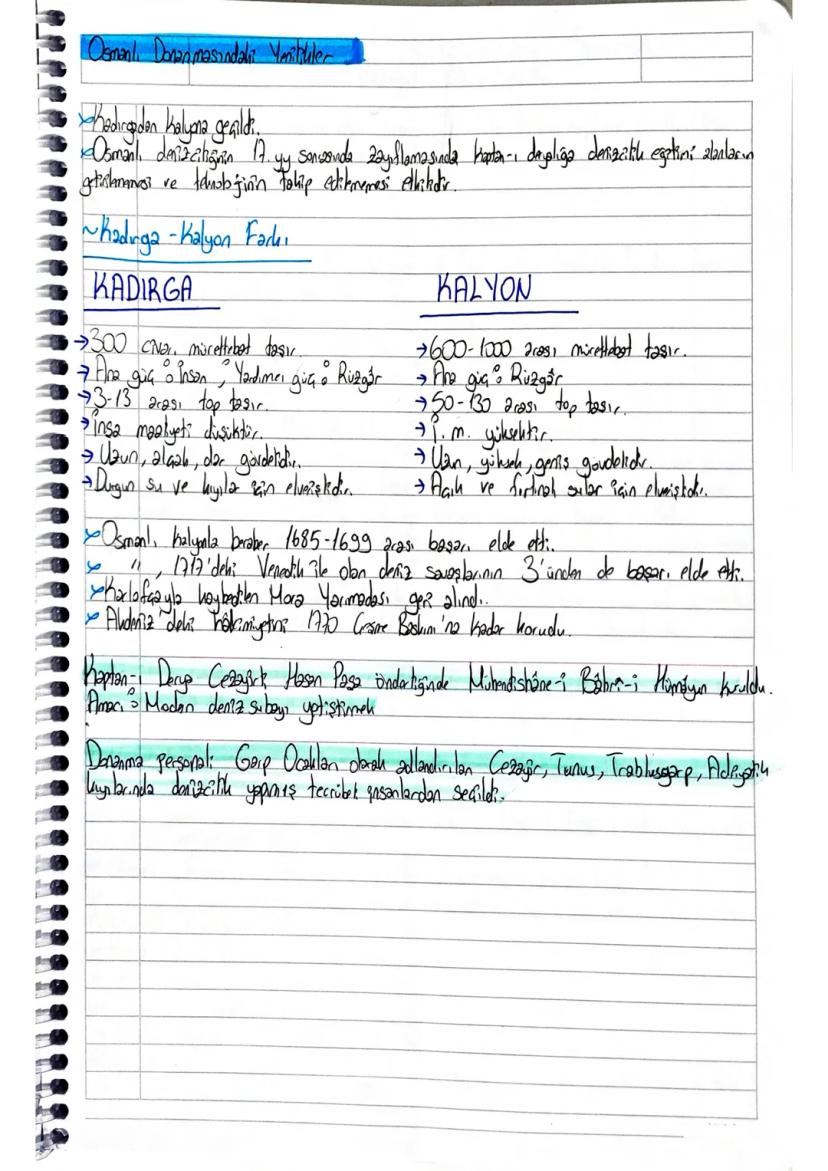 Osmanlı Donanmasındaki Yenilikler
Kadırgadan kalyona geçildi.
Osmanlı denizciliğinin 17. yy sonrasında zayıflamasında kaptan-ı deryalığa denizcilik eğitimi alanların
getirilmemesi ve teknolojinin takip edilmemesi etkilidir.
~Kadırga - Kalyon Farkı
KADIRGA
KALYON
→300 civarı mürettebat taşır.
→600-1000 arası mürettebat taşır.
→Ana güç: İnsan, Yardımcı güç: Rüzgâr
→Ana güç: Rüzgâr
→3-13 arası top taşır.
→50-130 arası top taşır.
→İnşa maaliyeti düşüktür.
→İ. m. yüksektir.
→Uzun, alçak, dar gövdelidir.
→Uzn, yüksek, geniş gövdelidir.
→Durgun su ve kıyılar için elverişlidir.
→Açık ve fırtınalı sular için elverişlidir.
Osmanlı, kalyonla beraber 1685-1699 arası başarı elde etti.
", 1717'deki Venedik ile olan deniz savaşlarının 3'ünden de başarı elde etti.
Karlofçayla kaybedilen Mora Yarımadası geri alındı.
Akdeniz'deki hâkimiyetini 1770 Çeşme Baskını'na kadar korudu.
Kaptan-ı Derya Cezayirli Hasan Paşa önderliğinde Mühendishâne-i Bâhrî-i Hümâyun kuruldu.
Amacı: Modern deniz subayı yetiştirmek
Donanma personeli: Garp Ocakları olarak adlandırılan Cezayir, Tunus, Trablusgarp, Adriyatik
kıyılarında denizcilik yapmış tecrübeli insanlardan seçildi.